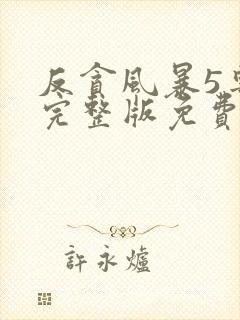 反貪風暴5
完整版免費
許永爐